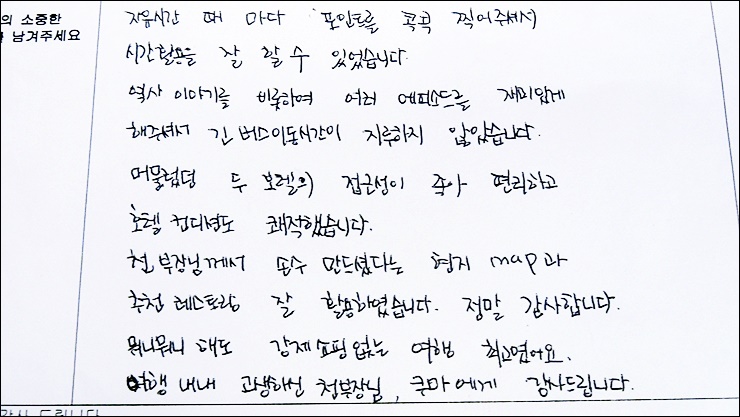 의 소중한
남겨주세요
자유시간 때 마다 포인트를 콕콕 찍어주셔서
시간활용을 잘 할 수 있었습니다.
역사 이야기를 비롯하여 여러 에피소드를 재미있게
해주셔서 긴 버스이동시간이 지루하지 않았습니다.
머물렀던 두 호텔의 접근성이 좋아 편리하고
호텔 컨디션도 쾌적했습니다.
천부장님께서 손수 만드셨다는 현지 map과
추천 레스토랑 잘 활용하였습니다. 정말 감사합니다.
뭐니뭐니 해도 강제쇼핑 없는 여행 최고였어요.
여행 내내 고생하신 천부장님, 쿠마에게 감사드립니다.
감사 드립니다